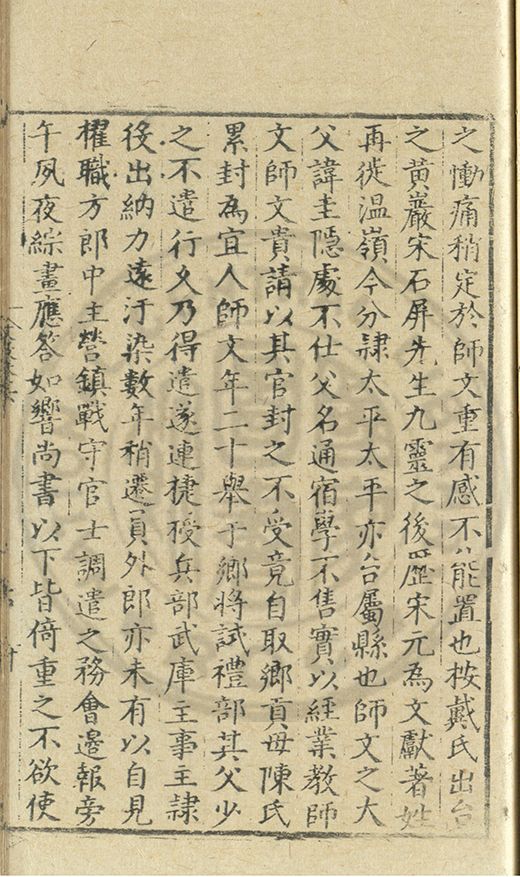 之慟痛稍定於師文重有感不能置也按戴氏出台
之黃巖宋石屏先生九靈之後歷宋元為文獻著姓
再徙温嶺今分隷太平太平亦台屬縣也師文之大
父諱圭隱處不仕父名通宿學不售實以經業教師
文師文貴請以其官封之不受竟自取鄉貢母陳氏
累封為宜人師文年二十舉于鄉將試禮部其父少
之不遣行久乃得遣遂連捷授兵部武庫主事主隷
後出納力遠汙染數年稍遷員外郎亦未有以自見
櫂職方郎中主營鎮戰守官士調遣之務會邊報旁
午夙夜綜畫應答如響尚書以下皆倚重之不欲使